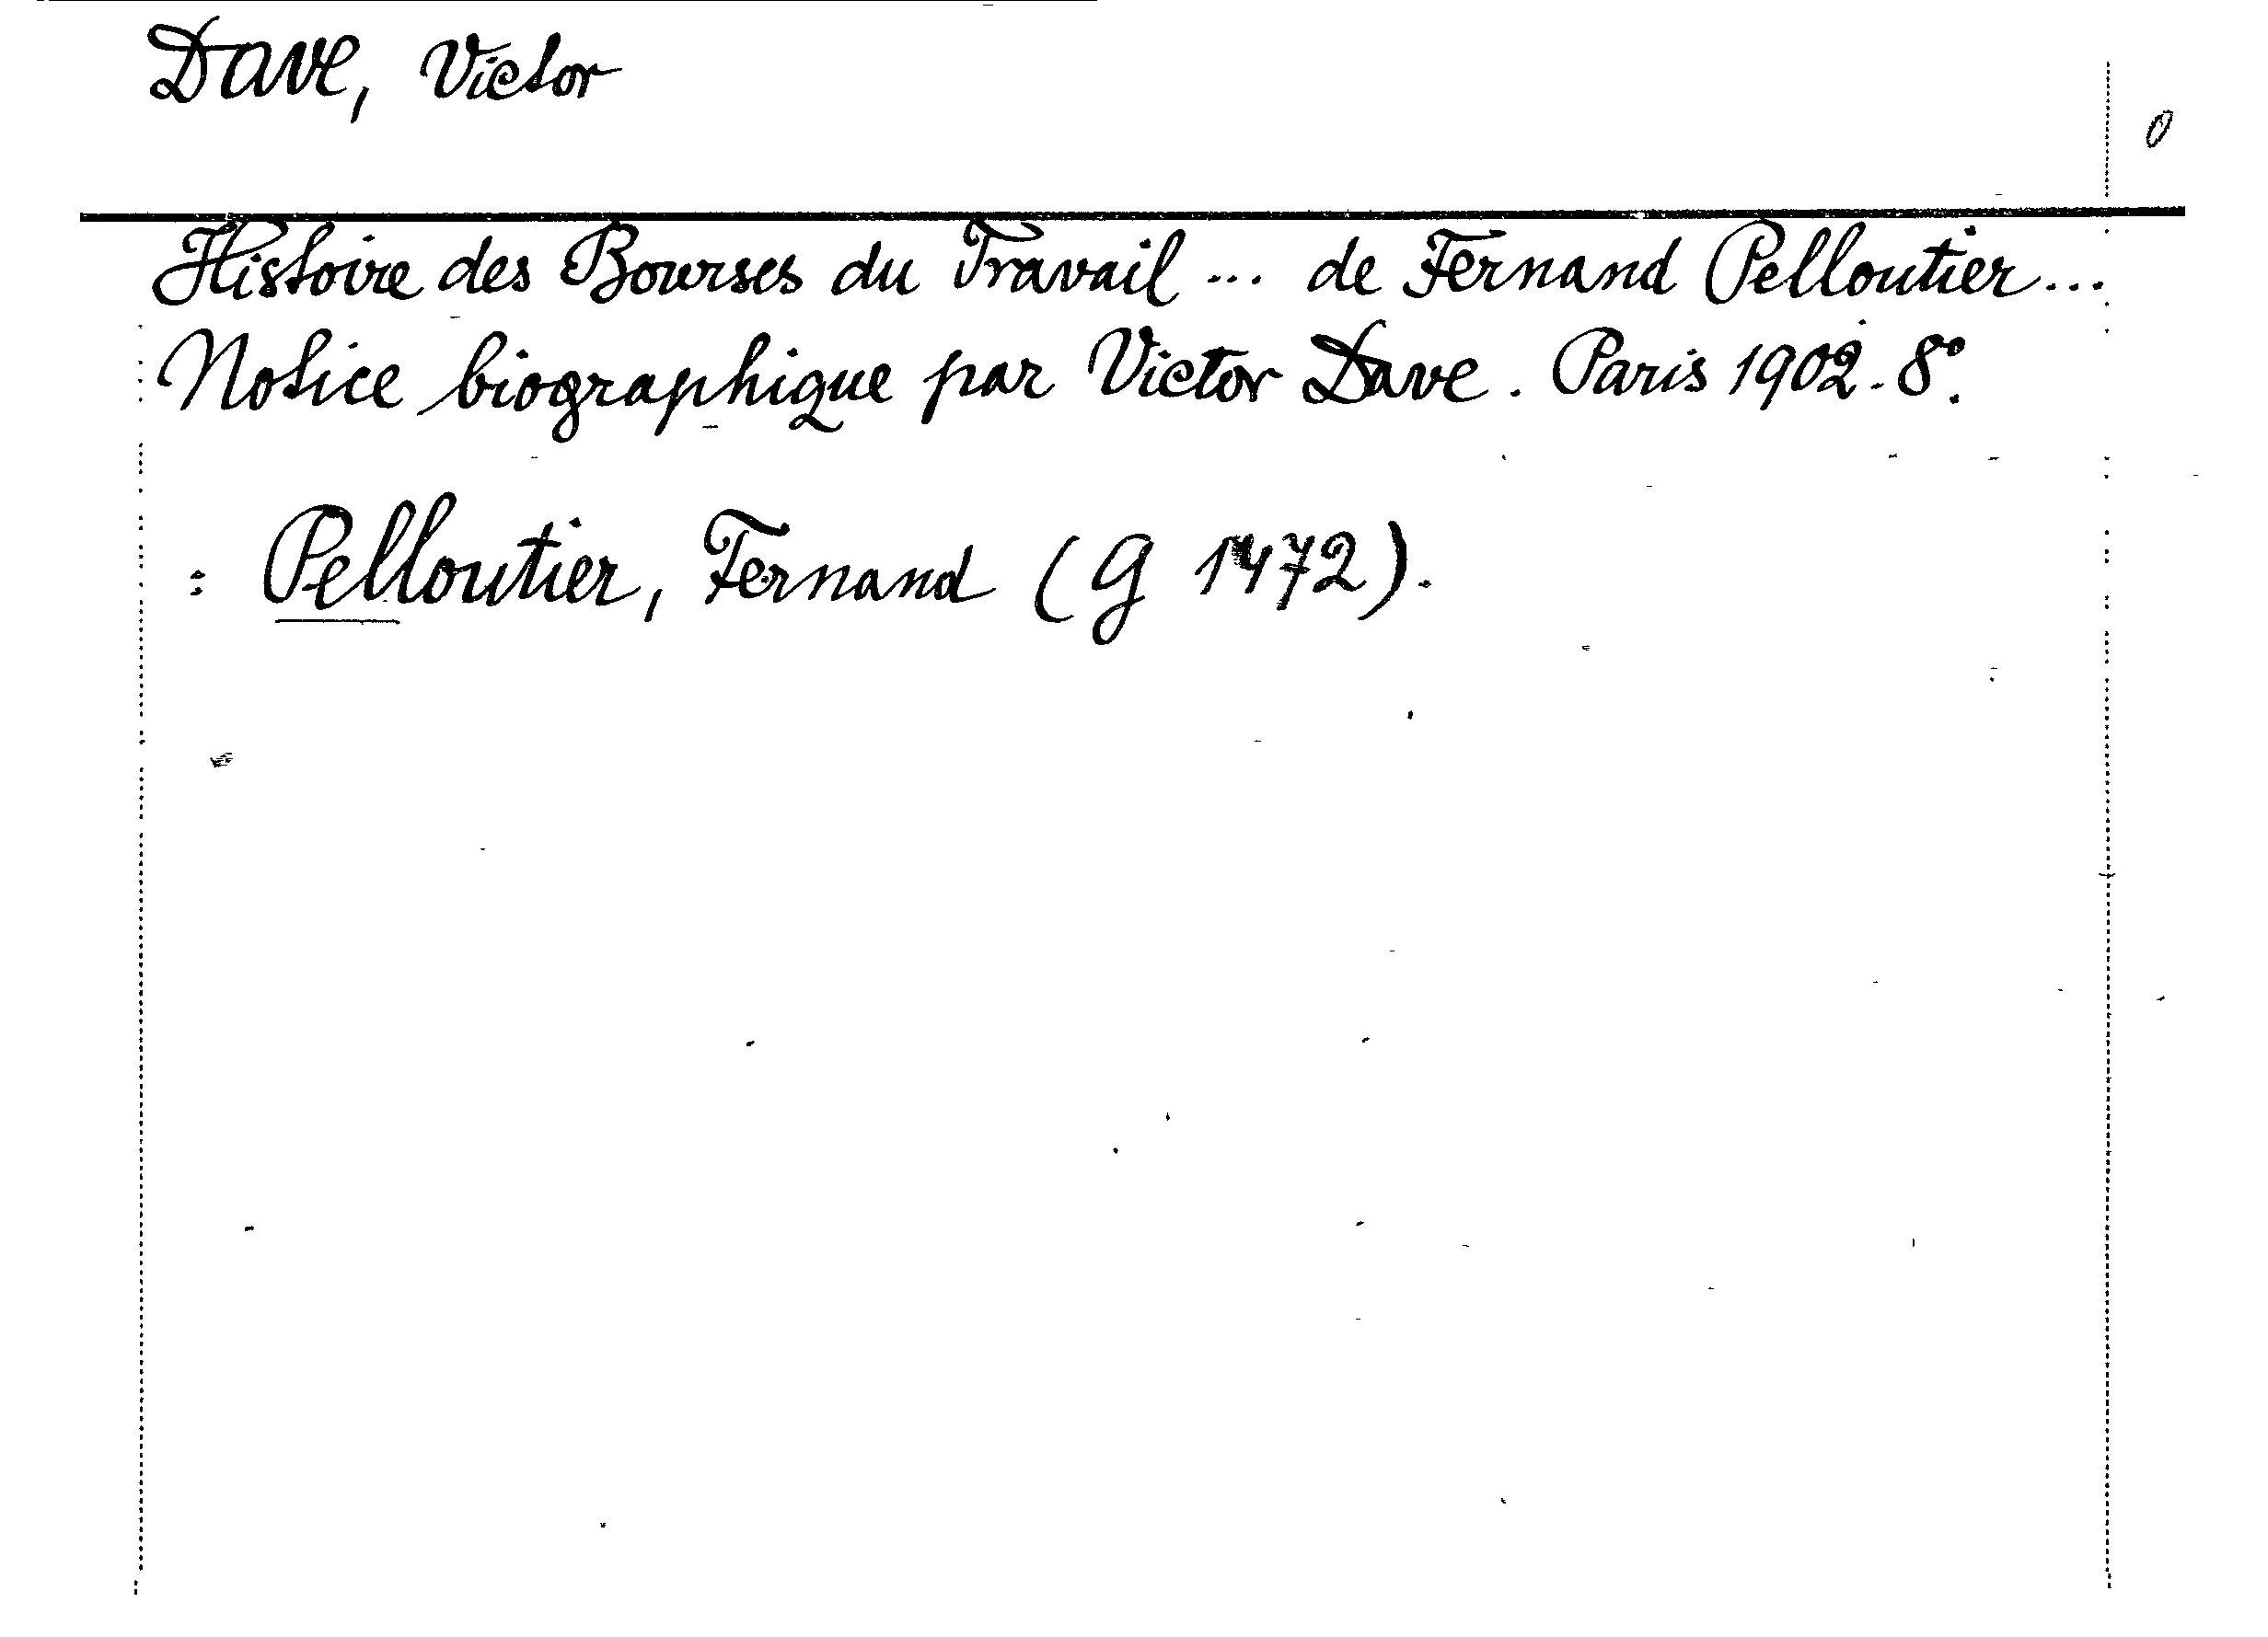 Dave, Victor
0
Histoire des Bourses du Travail ... de Fernand Pelloutier...
Notice biographique par Victor Dave. Paris 1902. 8°.
: Pelloutier, Fernand (G 1472).